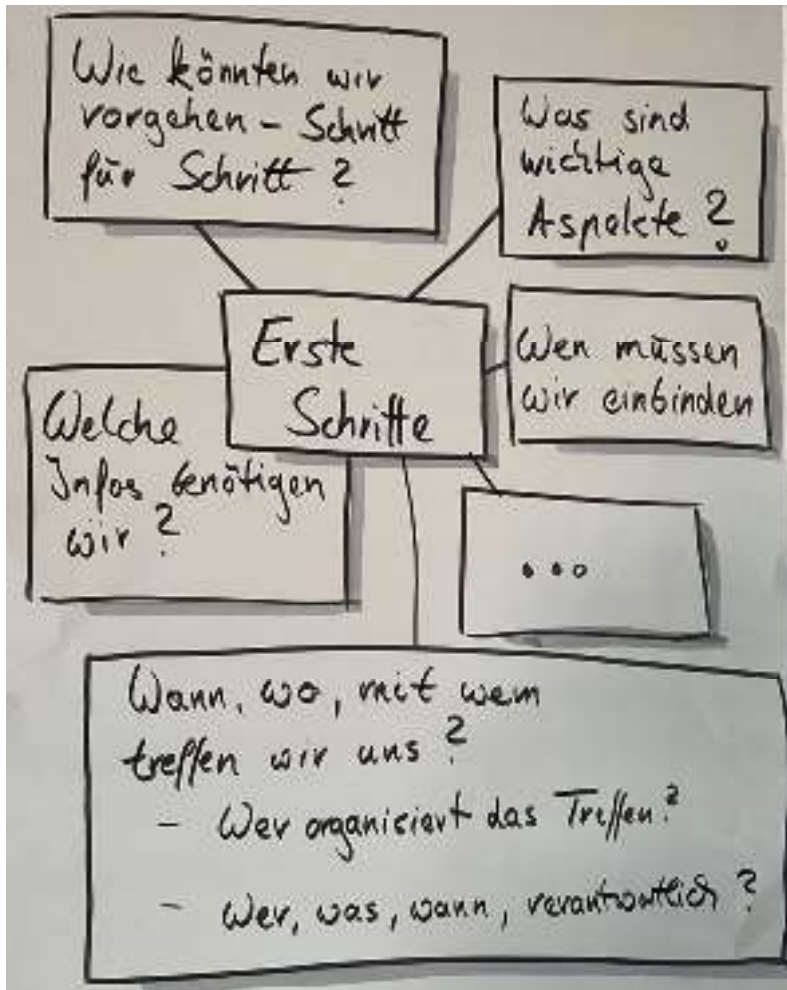 Wie könnten wir
vorgehen - Schritt
für Schritt ?
Was sind
wichtige
Aspekte ?
Erste
Schritte
Wen müssen
wir einbinden
Welche
Infos benötigen
wir ?
...
Wann, wo, mit wem
treffen wir uns ?
- Wer organisiert das Treffen ?
- Wer, was, wann, verantwortlich ?